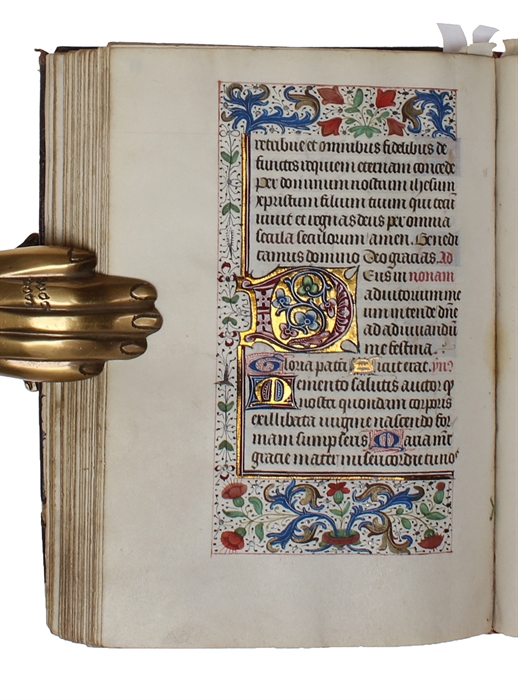 retribue et omnibus fidelibus de
functis requiem eternam concede
Per dominum nostrum ihesum
xpristum filium tuum qui tecū
uiuit et regnas deus per omnia
secula seculorum amen. Benedi
camus domino Deo gracias. Ad
Deus in nonam
adiutorium me
um intende dn̄e
ad adiuuandū
me festina.
Gloria patri Sicut erat. yn̄9
Memento salutis auctor q̄
nostri quondam corporis
ex illibata uirgine nascendo for
mam sumpseris Maria mr̄
gracie mater misericordie tu nos